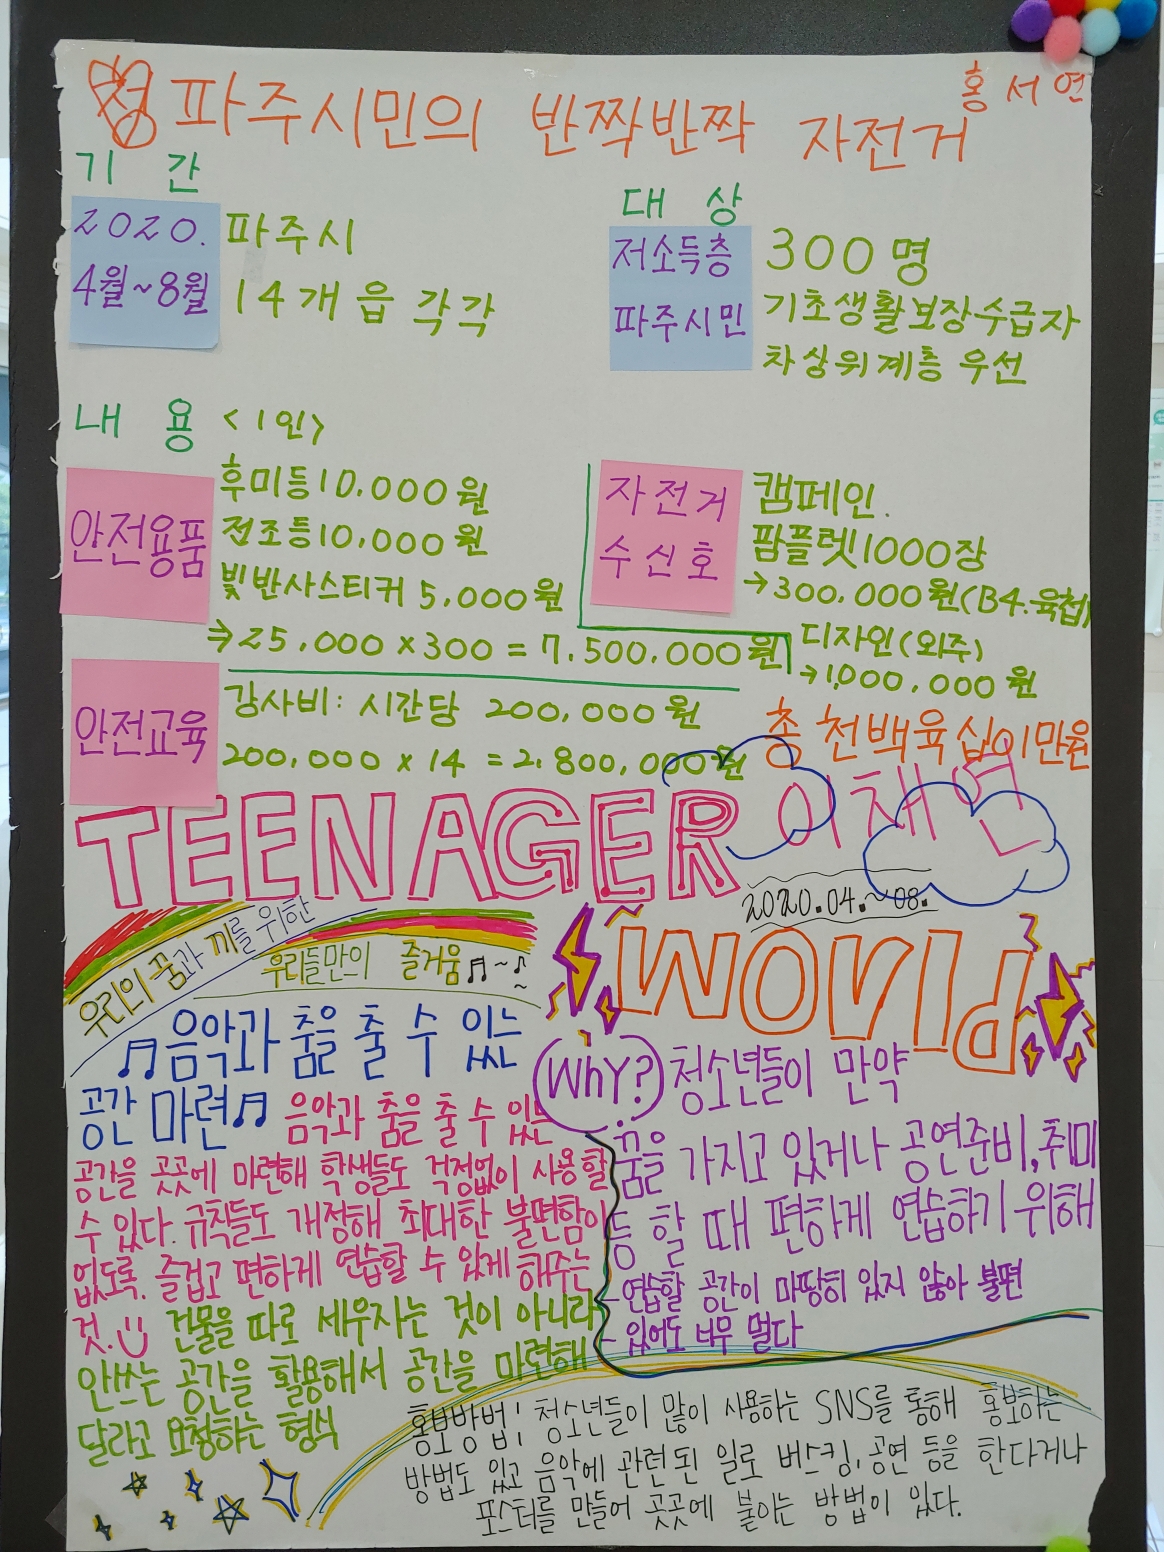 홍서연
파주시민의 반짝반짝 자전거
기 간
2020.
4월~8월
파주시
14개 읍 각각
대 상
저소득층
파주시민
300명
기초생활보장수급자
차상위계층 우선
내 용 <1인>
안전용품
후미등10.000원
전조등10,000원
빛반사스티커 5,000원
⇒25,000×300=7.500.000원
자전거
수신호
캠페인.
팜플렛1000장
→300.000원(B4.육첩)
디자인(외주)
→1,000,000원
안전교육
강사비: 시간당 200,000원
200,000×14=2.800,000원
총 천백육십이만원
TEENAGER
2020.04.~08.
MOVIP
우리의 꿈과 끼를 위한
우리들만의 즐거움♬~♪
♬음악과 춤을 출 수 있는
공간 마련♬
음악과 춤을 출 수 있는
공간을 곳곳에 마련해 학생들도 걱정없이 사용할
수 있다. 규칙들도 개정해 최대한 불편함이
없도록. 즐겁고 편하게 연습할 수 있게 해주는
것.
건물을 따로 세우자는 것이 아니라
안쓰는 공간을 활용해서 공간을 마련해
달라고 요청하는 형식
Why?
청소년들이 만약
꿈을 가지고 있거나 공연준비,취미
등 할 때 편하게 연습하기 위해
-연습할 공간이 마땅히 있지 않아 불편
-있어도 너무 멀다
홍보방법! 청소년들이 많이 사용하는 SNS를 통해 홍보하는
방법도 있고 음악에 관련된 일로 버스킹,공연 등을 한다거나
포스터를 만들어 곳곳에 붙이는 방법이 있다.